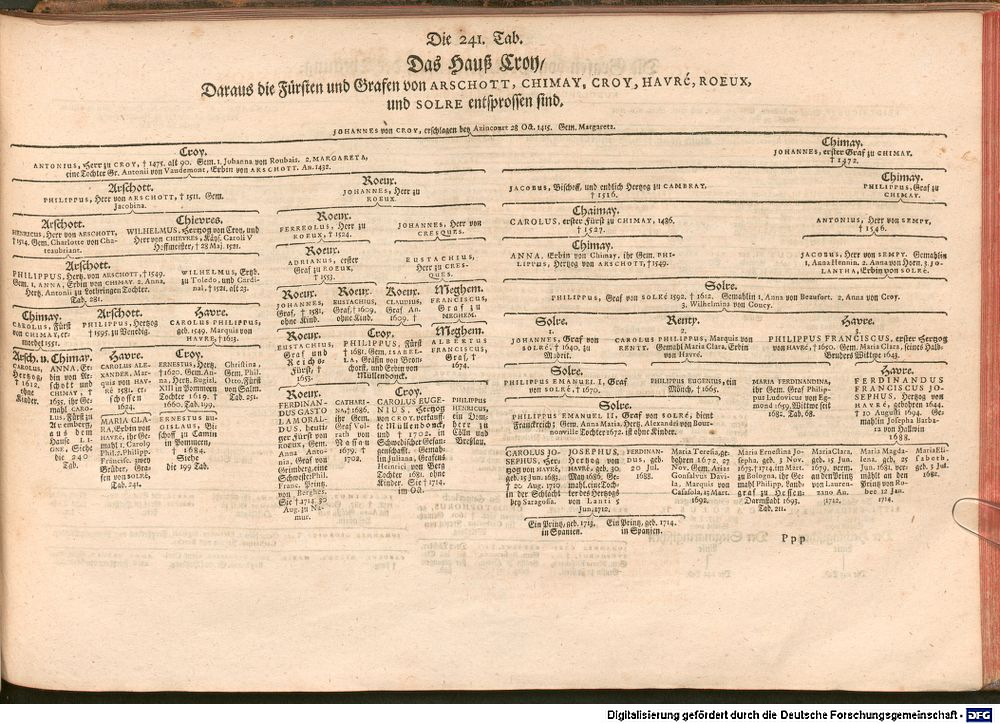 Die 241. Tab.
Das Hauß Croy/
Daraus die Fürsten und Grafen von ARSCHOTT, CHIMAY, CROY, HAVRÉ, ROEUX,
und SOLRE entsprossen sind.
JOHANNES von CROY, erschlagen bey Azincourt 28 Oct. 1415. Gem. Margareta.
Croy.
ANTONIUS, Herr zu CROY, † 1475. alt 90. Gem. 1. Johanna von Roubais. 2. MARGARETA,
eine Tochter Gr. Antonii von Vaudemont, Erbin von ARSCHOTT. An. 1432.
Chimay.
JOHANNES, erster Graf zu CHIMAY.
† 1472.
Arschott.
PHILIPPUS, Herr von ARSCHOTT, † 1511. Gem.
Jacobina.
Roeux.
JOHANNES, Herr zu
ROEUX.
JACOBUS, Bischoff, und endlich Hertzog zu CAMBRAY.
† 1516.
Chimay.
PHILIPPUS, Graf zu
CHIMAY.
Arschott.
HENRICUS, Herr von ARSCHOTT,
† 1514. Gem. Charlotte von Cha-
teaubriant.
Chievres.
WILHELMUS, Hertzog von Croy, und
Herr von CHIEVRES, Käys. Caroli V
Hoffmeister, † 28 Maj. 1521.
Roeux.
FERREOLUS, Herr zu
ROEUX, † 1524.
JOHANNES, Herr von
CRESQUES.
Chaimay.
CAROLUS, erster Fürst zu CHIMAY, 1486.
† 1527.
ANTONIUS, Herr von SEMPY,
† 1546.
Arschott.
PHILIPPUS, Hertz. von ARSCHOTT, † 1549.
Gem. 1. ANNA, Erbin von CHIMAY. 2. Anna,
Hertz. Antonii zu Lothringen Tochter.
Tab. 281.
WILHELMUS, Ertzb.
zu Toledo, und Cardi-
nal, † 1521. alt 23.
Roeux.
ADRIANUS, erster
Graf zu ROEUX,
† 1553.
EUSTACHIUS,
Herr zu CRES-
QUES.
Chimay.
ANNA, Erbin von Chimay, ihr Gem. PHI-
LIPPUS, Hertzog von ARSCHOTT, † 1549.
JACOBUS, Herr von SEMPY. Gemahlin
1. Anna Hennin. 2. Anna von Horn. 3. JO-
LANTHA, Erbin von SOLRÉ.
Solre.
PHILIPPUS, Graf von SOLRÉ 1592. † 1612. Gemahlin 1. Anna von Beaufort. 2. Anna von Croy.
3. Wilhelmina von Coucy.
Chimay.
CAROLUS, Fürst
von CHIMAY, er-
mordet 1551.
Arschott.
PHILIPPUS, Hertzog
† 1595. zu Venedig.
Havre.
CAROLUS PHILIPPUS,
geb. 1549. Marquis von
HAVRÉ, † 1613.
Roeux.
JOHANNES,
Graf, † 1581.
ohne Kind.
Roeux.
EUSTACHIUS,
Graf, † 1609,
ohne Kind.
Roeux.
CLAUDIUS,
Graf An.
1609. †
Meghem.
FRANCISCUS,
Graf zu
MEGHEM.
Solre.
1.
JOHANNES, Graf von
SOLRÉ. † 1640. zu
Madrit.
Renty.
2.
CAROLUS PHILIPPUS, Marquis von
RENTY. Gemahl Maria Clara, Erbin
von Havré.
Havre.
3.
PHILIPPUS FRANCISCUS, erster Hertzog
von HAVRÉ, † 1650. Gem. Maria Clara, seines Halb-
Bruders Wittwe 1643.
Arsch. u. Chimay.
CAROLUS,
Hertzog,
† 1612,
ohne
Kinder.
ANNA, Er-
bin von Ar-
schott und
CHIMAY, †
1635. ihr Ge-
mahl CARO-
LUS, Fürst zu
Aremberg,
aus dem
Hause LI-
GNE, Siehe
die 240
Tab.
Havre.
CAROLUS ALE-
XANDER, Mar-
quis von HAV-
RÉ 1581. er-
schossen
1624.
MARIA CLA-
RA, Erbin von
HAVRÉ, ihr Ge-
mahl 1. Carolq
Phil. 2. Philipp.
Francisc. zwey
Brüder, Gra-
fen von SOLRE,
Tab. 241.
Croy.
ERNESTUS, Hertz.
† 1620. Gem. An-
na, Hertz. Bugisl.
XIII in Pommern
Tochter 1619. †
1660. Tab. 199.
ERNESTUS BU-
GISLAUS, Bi-
schoff zu Camin
in Pommern,
† 1684.
Siehe
die 199 Tab.
Christina,
Gem. Phil.
Otto, Fürst
von Salm.
Tab. 251.
Roeux.
EUSTACHIUS,
Graf und
Reichs-
Fürst, †
1653.
Croy.
PHILIPPUS, Fürst
† 1681. Gem. ISABEL-
LA, Gräfin von Bronk-
horst, und Erbin von
Müllendonck.
Meghem.
ALBERTUS
FRANCISCUS,
Graf, †
1674.
Roeux.
FERDINAN-
DUS GASTO
LAMORAL-
DUS, heuti-
ger Fürst von
ROEUX, Gem.
Anna Anto-
nia, Graf von
Grimberg, eine
Schwester Phil.
Franc. Printz.
von Berghes.
Sie † 1714. 30
Aug. zu Na-
mur.
CATHARI-
NA, † 1686.
ihr Gem.
Graf Vol-
rath von
Nassau
1679. †
1702.
Croy.
CAROLUS EUGE-
NIUS, Hertzog
von CROY, verkauff-
te Müllendonck,
und † 1702. in
Schwedischer Gefan-
genschafft. Gemah-
lin Juliana, Grafens
Heinrici von Berg
Tochter 1681. ohne
Kinder. Sie † 1714.
im Oct.
PHILIPPUS
HENRICUS,
ein Dom-
herr zu
Cölln und
Breßlau.
Solre.
PHILIPPUS EMANUEL I, Graf
von SOLRÉ, † 1670.
PHILIPPUS EUGENIUS, ein
Münch, † 1665.
MARIA FERDINANDINA,
ihr Gem. Graf Philip-
pus Ludovicus von Eg-
mond 1659. Wittwe seit
1682. Tab. 68.
Havre.
FERDINANDUS
FRANCISCUS JO-
SEPHUS, Hertzog von
HAVRÉ, gebohren 1644.
† 10 Augusti 1694. Ge-
mahlin Josepha Barba-
ra von Hallwin
1688.
Solre.
PHILIPPUS EMANUEL II, Graf von SOLRÉ, dient
Franckreich; Gem. Anna Maria, Hertz. Alexandri von Bour-
nonville Tochter 1672. ist ohne Kinder.
CAROLUS JO-
SEPHUS, Her-
tzog von HAVRÉ,
geb. 15 Jun. 1683.
† 20 Aug. 1710.
in der Schlacht
bey Saragossa.
JOSEPHUS,
Hertzog von
HAVRÉ, geb. 30.
May 1686, Ge-
mahl. eine Toch-
ter des Hertzogs
von Lanti 5
Jun. 1712.
FERDINAN-
DUS, geb.
20 Jul.
1688.
Maria Teresa, ge-
bohren 1672. 27
Nov. Gem. Arias
Gonsalvus Davi-
la, Marquis von
Casasola, 15 Mart.
1692.
Maria Ernestina Jo-
sepha, geb. 3 Nov.
1673. † 1714. im Mart.
zu Bologna, ihr Ge-
mahl Philipp. Land-
graf zu Hessen-
Darmstadt 1693.
Tab. 211.
Maria Clara,
geb. 15 Jun.
1679. verm.
an den Printz
von Lauren-
zano An.
1712.
Maria Magda-
lena, geb. 25
Jun. 1681, ver-
mählt an den
Printz von Ro-
bec 12 Jan.
1714.
Maria Eli-
sabeth,
geb. 5 Jul.
1682.
Ein Printz, geb. 1713.
in Spanien.
Ein Printz, geb. 1714.
in Spanien.
Ppp
Digitalisierung gefördert durch die Deutsche Forschungsgemeinschaft - DFG